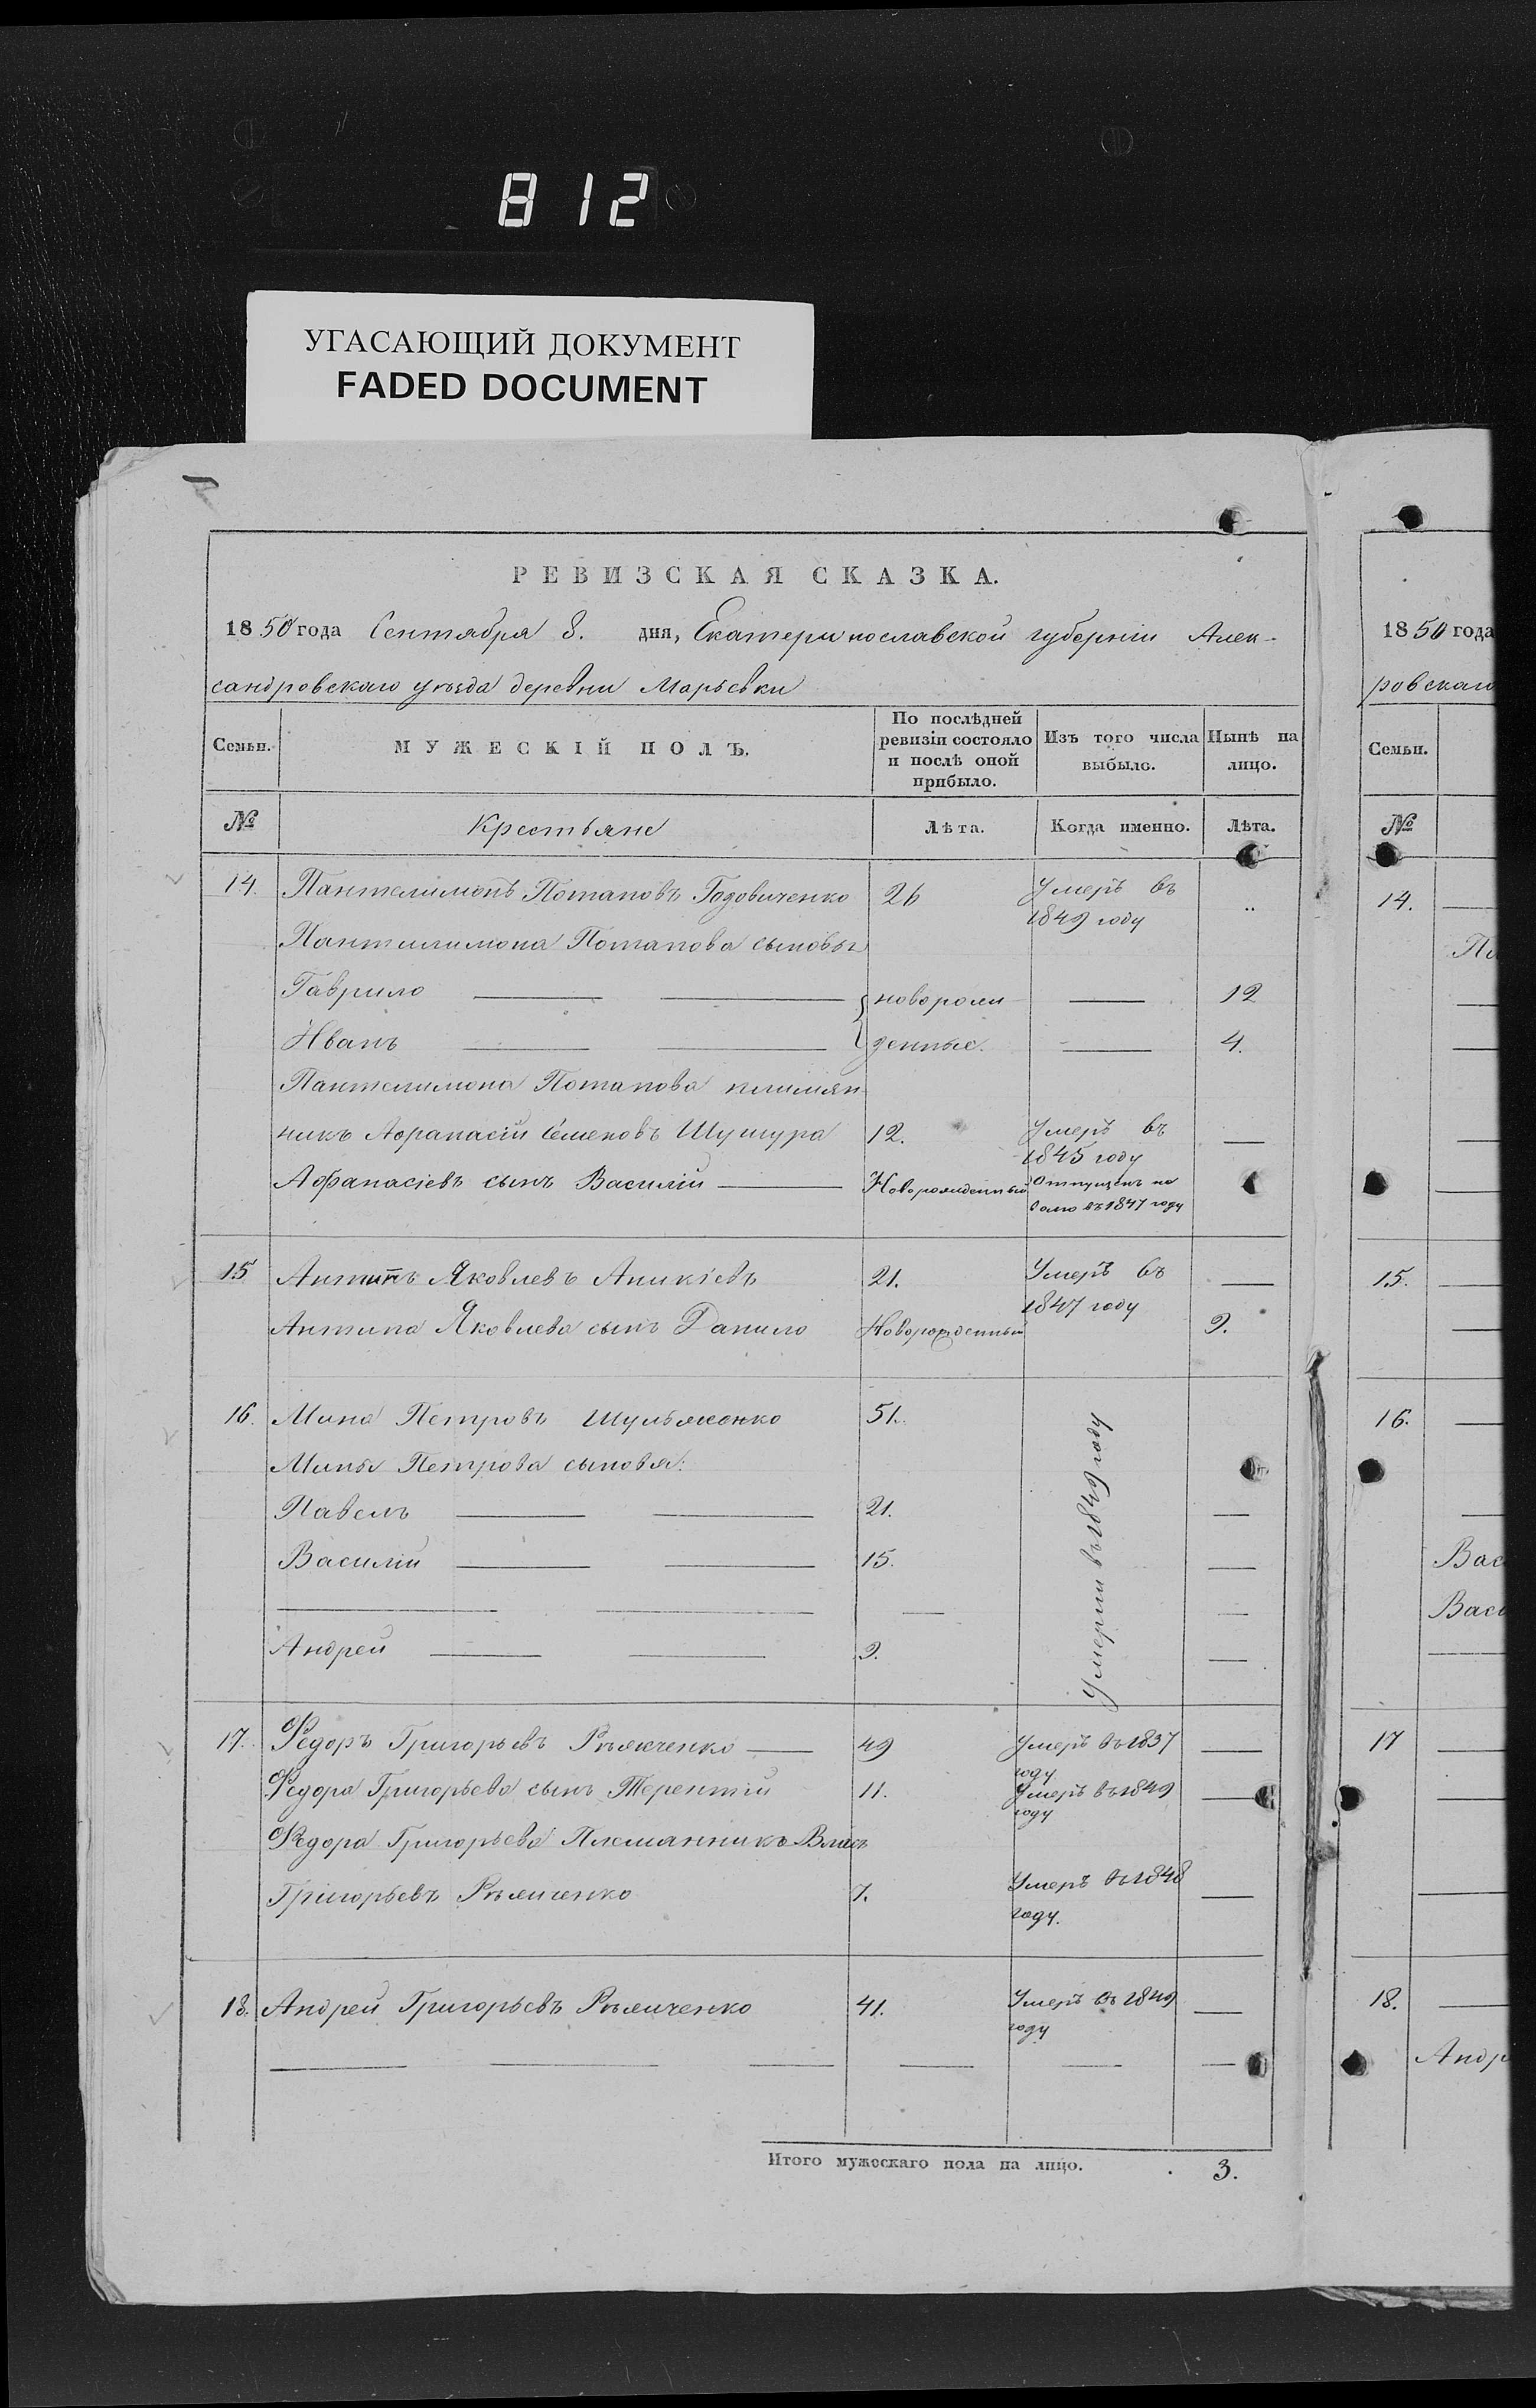 812
УГАСАЮЩИЙ ДОКУМЕНТ
FADED DOCUMENT
РЕВИЗСКАЯ СКАЗКА.
1850 года Сентября 8. дня, Екатеринославской губерніи Алек-
сандровскаго уѣзда деревни Марьевки
Семьи. МУЖЕСКІЙ ПОЛЪ. По послѣдней ревизіи состояло и послѣ оной прибыло. Изъ того числа выбыло. Нынѣ на лицо.
№ Крестьяне Лѣта. Когда именно. Лѣта.
14. Пантелимонъ Потаповъ Годовиченко 26 Умеръ въ 1849 году
Пантилимона Потапова сыновья
Гаврило новорож- 12
Иванъ денные. 4.
Пантелимона Потапова племян-
никъ Афанасій Семеновъ Шушура 12. Умеръ въ 1845 году
Афанасіевъ сынъ Василій Новорожденный Отпущенъ на волю въ 1847 году
15 Антипъ Яковлевъ Аникіевъ 21. Умеръ въ 1847 году
Антипа Яковлева сынъ Данило Новорожденный 9.
16. Мина Петровъ Шульженко 51.
Мины Петрова сыновья:
Павелъ 21.
Василій 15.
Андрей 9.
Умерли въ 1849 году
17. Федоръ Григорьевъ 49 Умеръ въ 1837 году
Федора Григорьева сынъ Терентій 11. Умеръ въ 1849 году
Федора Григорьева Племянникъ Власъ
Григорьевъ 7. Умеръ въ 1848 году.
18. Андрей Григорьевъ 41. Умеръ въ 1849 году
Итого мужескаго пола на лицо. 3.
1850 года
ровскаго
Семьи.
№
14.
Па
15.
16.
Вас
Васи
17
18.
Андр